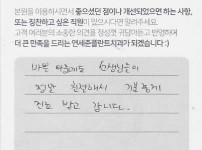 본원을 이용하시면서 좋으셨던 점이나 개선되었으면 하는 사항,
또는 칭찬하고 싶은 직원이 있으시다면 알려주세요.
고객 여러분의 소중한 의견을 정성껏 귀담아듣고 반영하여
더 큰 만족을 드리는 연세준플란트치과가 되겠습니다 :)
바쁜 와중에도 선생님들이
정말 친절하셔서 기분 좋게
진료 받고 갑니다.